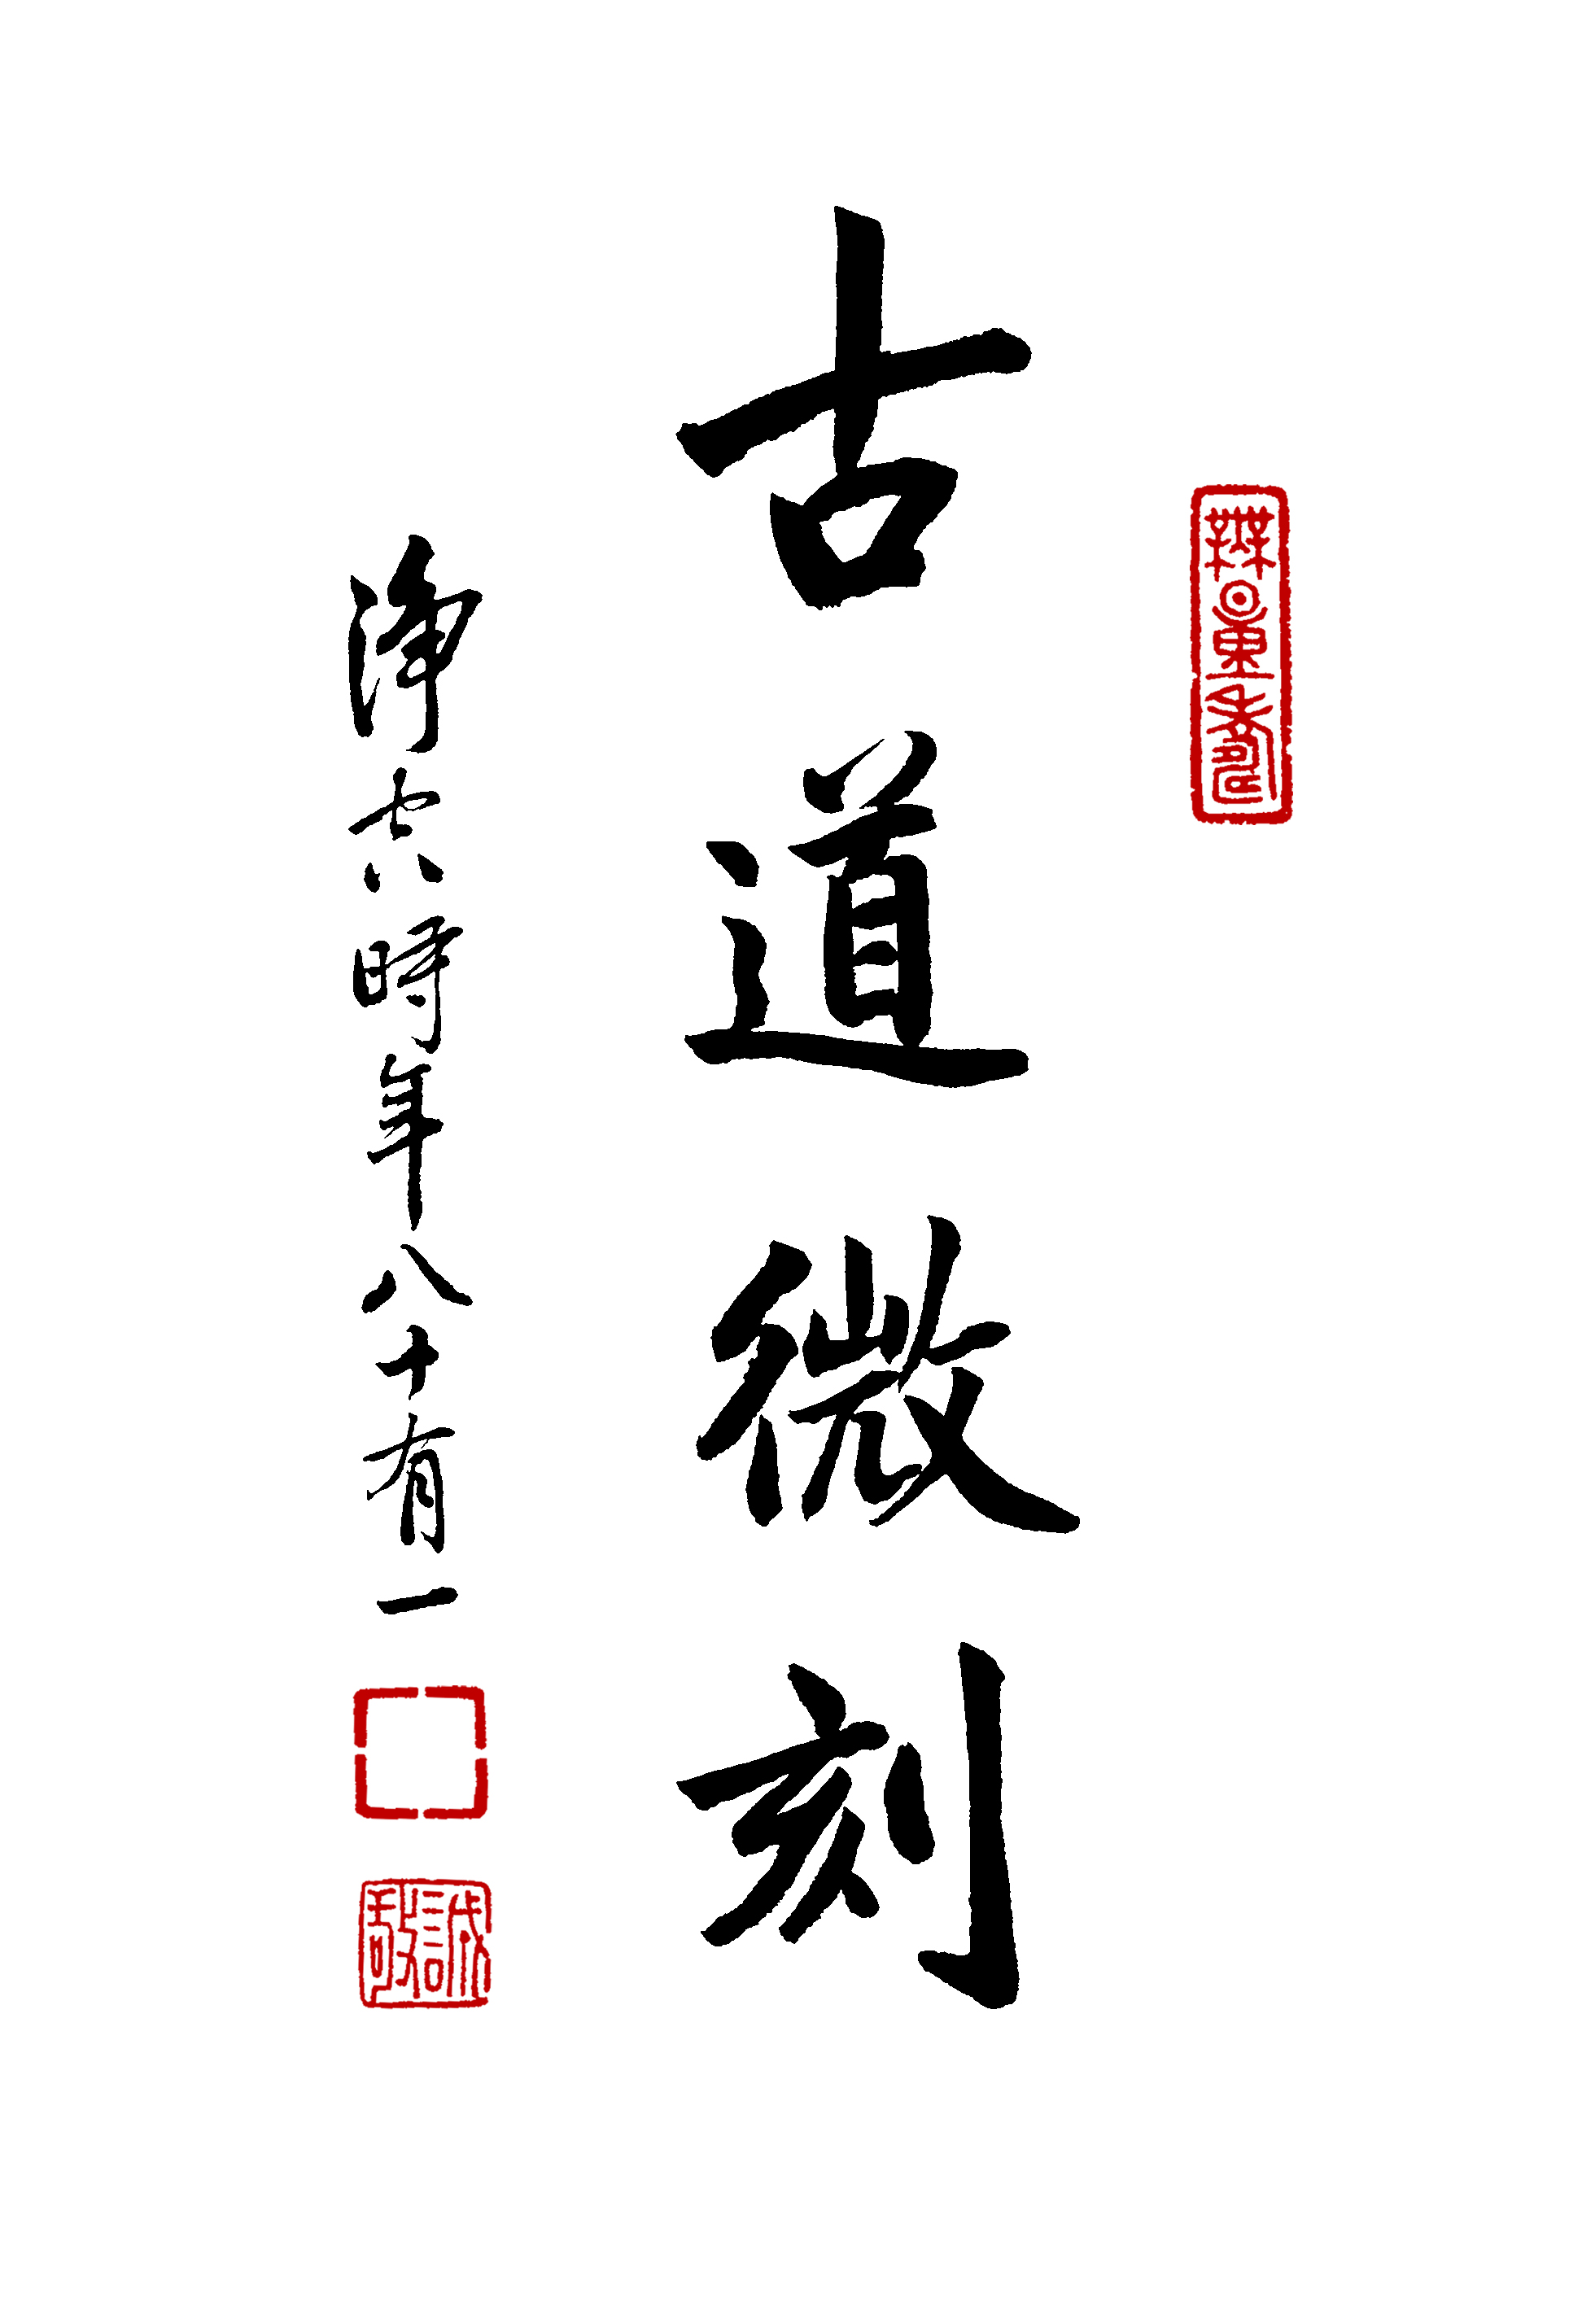 無量壽
古道微刻
淨空時年八十有一